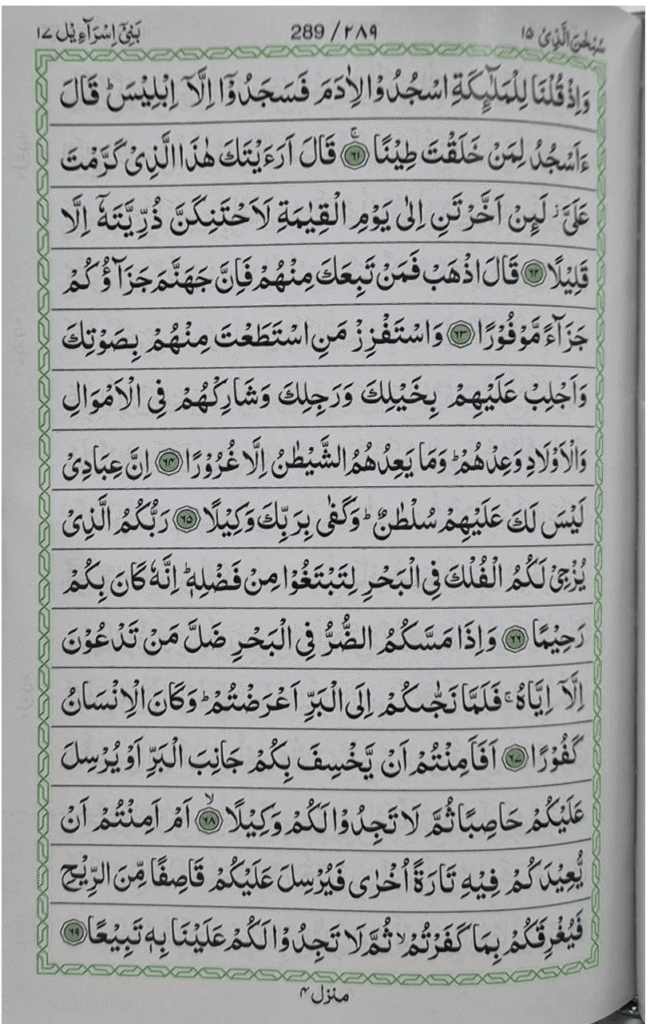 سُبْحٰنَ الَّذِیْۤ ۱۵ 289 / ۲۸۹ بَنِیْۤ اِسْرَآءِیْل ۱۷
وَاِذْ قُلْنَا لِلْمَلٰٓئِكَةِ اسْجُدُوْا لِاٰدَمَ فَسَجَدُوْۤا اِلَّاۤ اِبْلِیْسَؕ قَالَ
ءَاَسْجُدُ لِمَنْ خَلَقْتَ طِیْنًا ۶۱ۚ قَالَ اَرَءَیْتَكَ هٰذَا الَّذِیْ كَرَّمْتَ
عَلَیَّؗ لَىِٕنْ اَخَّرْتَنِ اِلٰی یَوْمِ الْقِیٰمَةِ لَاَحْتَنِكَنَّ ذُرِّیَّتَهٗۤ اِلَّا
قَلِیْلًا ۶۲ قَالَ اذْهَبْ فَمَنْ تَبِعَكَ مِنْهُمْ فَاِنَّ جَهَنَّمَ جَزَآؤُكُمْ
جَزَآءً مَّوْفُوْرًا ۶۳ وَاسْتَفْزِزْ مَنِ اسْتَطَعْتَ مِنْهُمْ بِصَوْتِكَ
وَاَجْلِبْ عَلَیْهِمْ بِخَیْلِكَ وَرَجِلِكَ وَشَارِكْهُمْ فِی الْاَمْوَالِ
وَالْاَوْلَادِ وَعِدْهُمْؕ وَمَا یَعِدُهُمُ الشَّیْطٰنُ اِلَّا غُرُوْرًا ۶۴ اِنَّ عِبَادِیْ
لَیْسَ لَكَ عَلَیْهِمْ سُلْطٰنٌؕ وَكَفٰی بِرَبِّكَ وَكِیْلًا ۶۵ رَبُّكُمُ الَّذِیْ
یُزْجِیْ لَكُمُ الْفُلْكَ فِی الْبَحْرِ لِتَبْتَغُوْا مِنْ فَضْلِهٖؕ اِنَّهٗ كَانَ بِكُمْ
رَحِیْمًا ۶۶ وَاِذَا مَسَّكُمُ الضُّرُّ فِی الْبَحْرِ ضَلَّ مَنْ تَدْعُوْنَ
اِلَّاۤ اِیَّاهُۚ فَلَمَّا نَجّٰىكُمْ اِلَی الْبَرِّ اَعْرَضْتُمْؕ وَكَانَ الْاِنْسَانُ
كَفُوْرًا ۶۷ اَفَاَمِنْتُمْ اَنْ یَّخْسِفَ بِكُمْ جَانِبَ الْبَرِّ اَوْ یُرْسِلَ
عَلَیْكُمْ حَاصِبًا ثُمَّ لَا تَجِدُوْا لَكُمْ وَكِیْلًا ۶۸ۙ اَمْ اَمِنْتُمْ اَنْ
یُّعِیْدَكُمْ فِیْهِ تَارَةً اُخْرٰی فَیُرْسِلَ عَلَیْكُمْ قَاصِفًا مِّنَ الرِّیْحِ
فَیُغْرِقَكُمْ بِمَا كَفَرْتُمْۙ ثُمَّ لَا تَجِدُوْا لَكُمْ عَلَیْنَا بِهٖ تَبِیْعًا ۶۹
منزل ۴